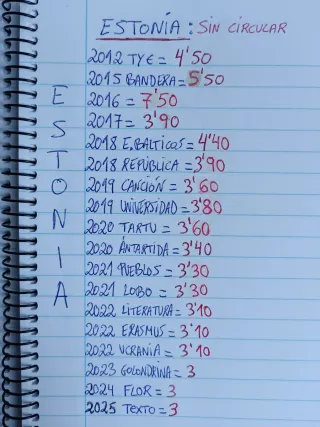 ESTONIA: SIN CIRCULAR
2012 TYE = 4'50
2015 BANDERA = 5'50
2016 = 7'50
2017 = 3'90
2018 E. BALTICOS = 4'40
2018 REPÚBLICA = 3'90
2019 CANCIÓN = 3'60
2019 UNIVERSIDAD = 3'80
2020 TARTU = 3'60
2020 ÁNTARTIDA = 3'40
2021 PUEBLOS = 3'30
2021 LOBO = 3'30
2022 LITERATURA = 3'10
2022 ERASMUS = 3'10
2022 UCRANIA = 3'10
2023 GOLONDRINA = 3
2024 FLOR = 3
2025 TEXTO = 3
ESTONIA